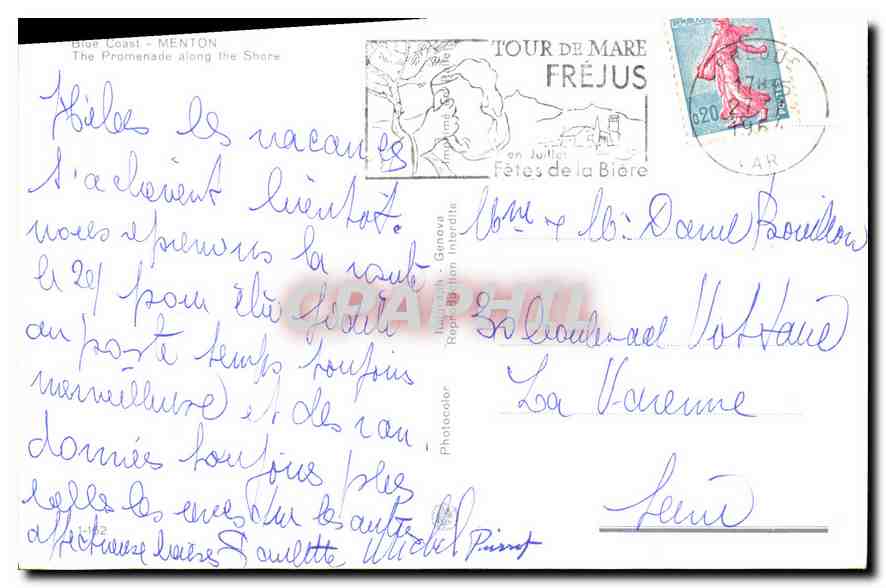 Blue Coast - MENTON
The Promenade along the Shore
Hélas les vacances
s'achèvent bientôt.
nous reprenons la route
le 29 pour être fidèle
au poste temps toujours
merveilleux et des ran
données toujours plus
belles les unes que les autres
affectueux baisers Paulette Michel
1-162
Imprimé en Italie
Photocolor
Italgraph - Genova
Reproduction Interdite
CPAPHIL
TOUR DE MARE
FRÉJUS
en Juillet
Fêtes de la Bière
0,20
17H
VAR
Mme & Mr Daniel Bouillon
50 boulevard Voltaire
La Varenne
Seine